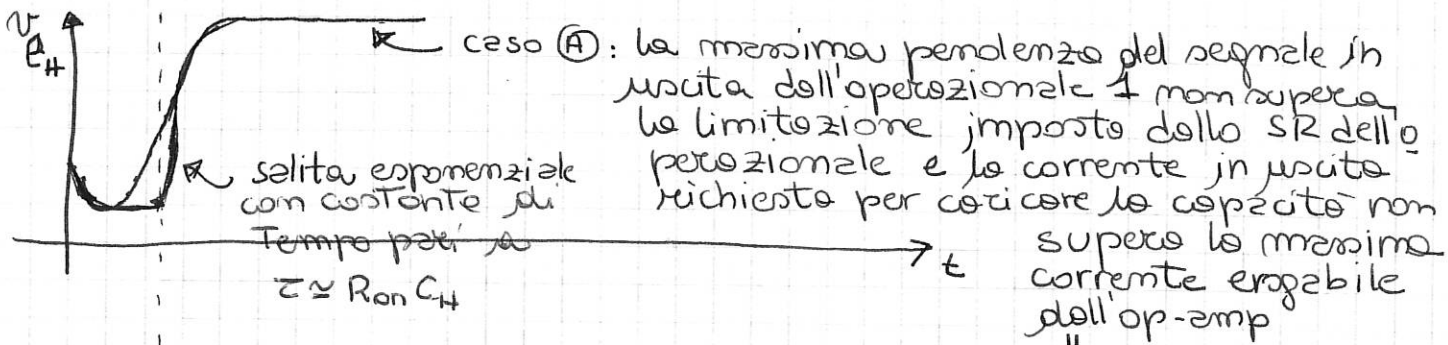 v
C_H
caso Ⓐ: la massima pendenza del segnale in
uscita dall'operazionale 1 non supera
la limitazione imposta dallo SR dell'o
perazionale e la corrente in uscita
richiesta per caricare la capacità non
supera la massima
corrente erogabile
dall'op-amp
salita esponenziale
con costante di
tempo pari a
τ ≃ R_on C_H
t